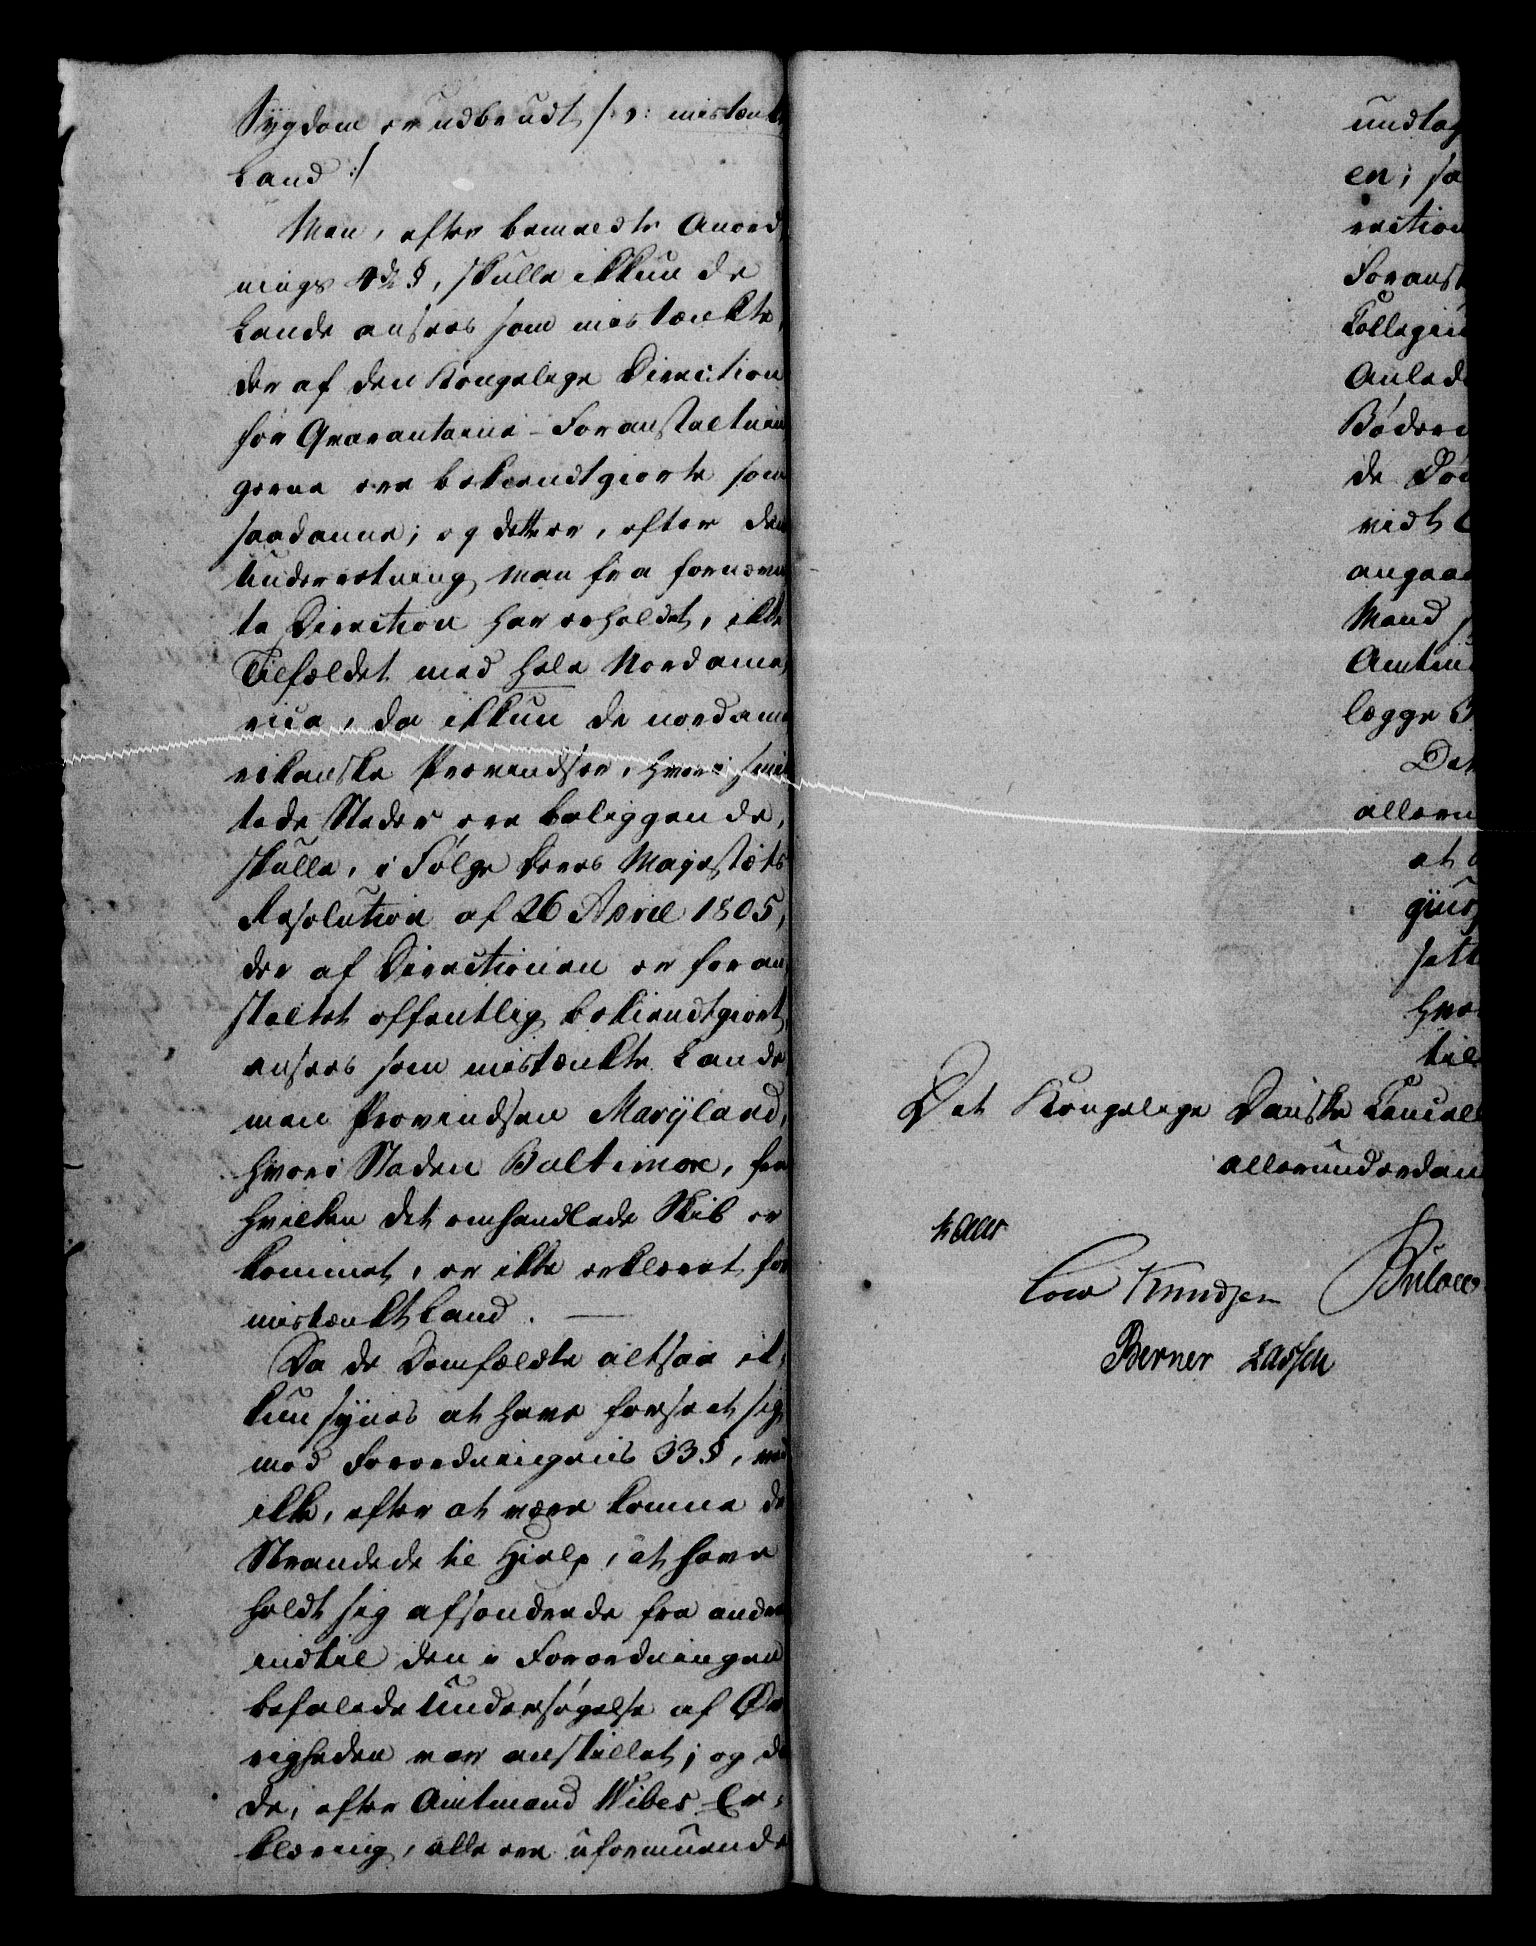 Sygdom er udbrudt /: ɔ: mistænkt
Land :/
Men, efter bemeldte Anord
nings 4de §, skulle ikkun de
Lande ansees som mistænkte,
der af den Kongelige Direction
for Qvarantaine-Foranstaltnin
gerne ere bekiendtgiorte som
saadanne; og dette er, efter den
Underretning man fra fornævn
te Direction har erholdet, ikke
Tilfældet med hele Nordame
rica, da ikkun de nordame
rikanske Provindser, hvori smit
tede Steder ere beliggende,
skulle, i Følge Deres Majestæts
Resolution af 26 April 1805,
der af Directionen er foran
staltet offentlig bekiendtgiort,
ansees som mistænkte Lande
men Provindsen Maryland,
hvori Staden Baltimore, fra
hvilken det omhandlede Skib er
kommet, er ikke erklæret for
mistænkt Land. —
Da de Domfældte altsaa ik
kun synes at have forseet sig
mod Forordningens 33 §, ved
ikke, efter at være komne de
Strandede til Hielp, at have
holdt sig afsondrede fra andre
indtil den i Forordningen
befalede Undersøgelse af Øv
righeden var anstillet; og da
de, efter Amtmand Wibes Er-
klæring, alle ere uformuende
undtag
en; sa
rection
Foranst
Collegiu
Anled
Bøder
de
vidt
angaa
Mand
Amtm
lægge
Det
allern
at
giur
sætt
hvo
til
Det Kongelige Danske Cancell
allerunderdan
Kaas
Cold Knudsen Bülow
Berner Lassen